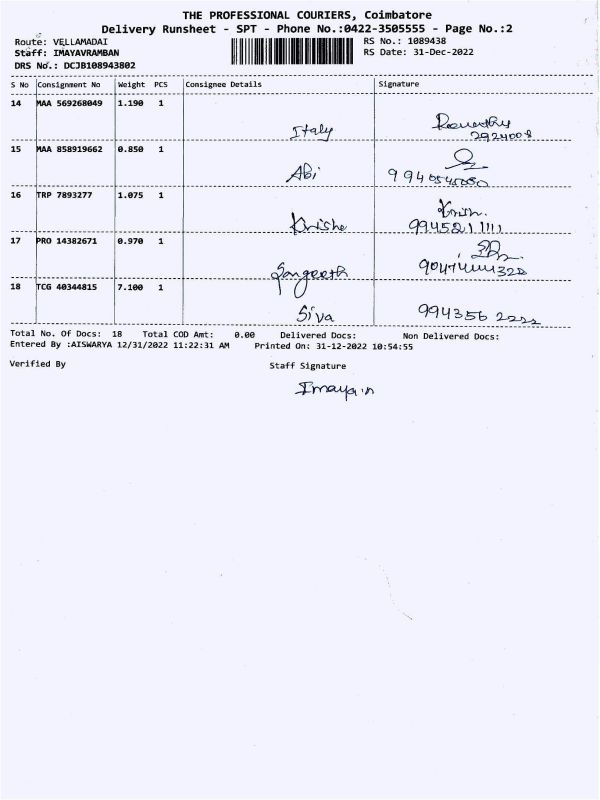 THE PROFESSIONAL COURIERS, Coimbatore
Delivery Runsheet - SPT - Phone No.:0422-3505555 - Page No.:2
Route: VELLAMADAI RS No.: 1089438
Staff: IMAYAVRAMBAN RS Date: 31-Dec-2022
DRS No.: DCJB108943802
S No Consignment No Weight PCS Consignee Details Signature
14 MAA 569268049 1.190 1
Italy 2924008
15 MAA 858919662 0.850 1
Abi
16 TRP 7893277 1.075 1
Krishe 9945211111
17 PRO 14382671 0.970 1
Sangeeth
18 TCG 40344815 7.100 1
Siva 994356 2222
Total No. Of Docs: 18 Total COD Amt: 0.00 Delivered Docs: Non Delivered Docs:
Entered By :AISWARYA 12/31/2022 11:22:31 AM Printed On: 31-12-2022 10:54:55
Verified By Staff Signature